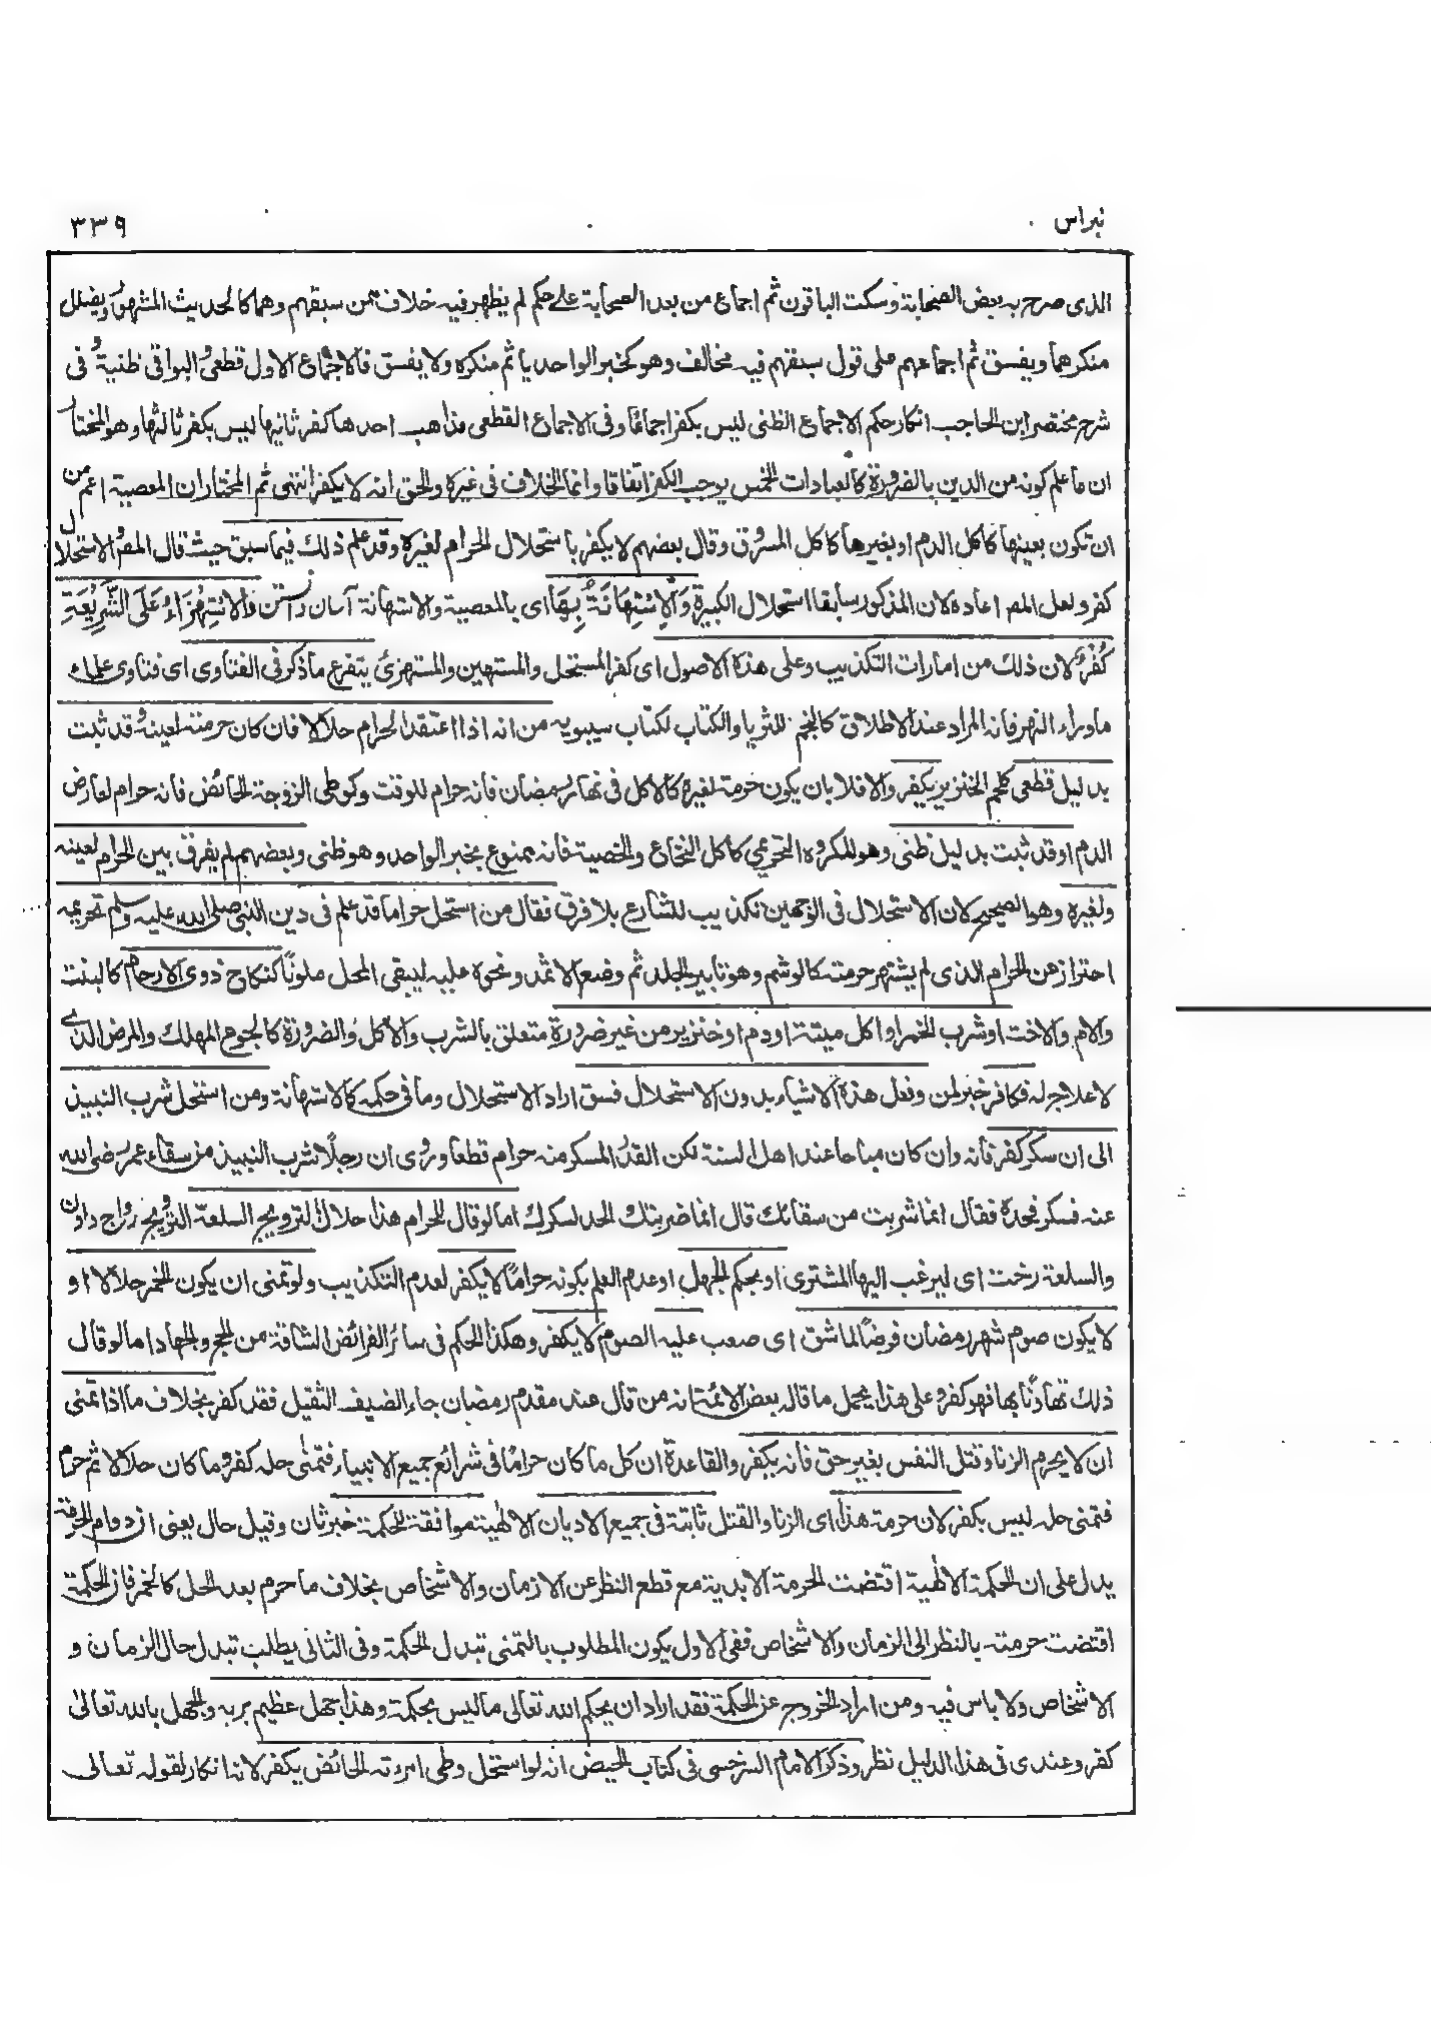 نبراس
٣٣٩
الذى صرح به بعض الصحابة وسكت الباقون ثم اجماع من بعد الصحابة على حكم لم يظهر فيه خلاف ممن سبقهم وهما كالحديث المشهور ويضلل
منكرهما ويفسق ثم اجماعهم على قول سبقهم فيه مخالف وهو كخبر الواحد ياثم منكره ولا يفسق فالاجماع الاول قطعى والبواقى ظنية وفى
شرح مختصر ابن الحاجب انكار حكم الاجماع الظنى ليس بكفر اجماعا وفى الاجماع القطعى مذاهب احدها كفر ثانيها ليس بكفر ثالثها وهو المختار
ان ما علم كونه من الدين بالضرورة كالعبادات الخمس يوجب الكفر اتفاقا وانما الخلاف فى غيره والحق انه لا يكفر انتهى ثم المختار ان المعصية اعم من
ان تكون بعينها كاكل الدم او بغيرها كاكل المسروق وقال بعضهم لا يكفر باستحلال الحرام لغيره وقد علم ذلك فيما سبق حيث قال المصر الاستحلال
كفر ولعل المصر اعاده لان المذكور سابقا استحلال الكبيرة وَالْاِسْتِهَانَةُ بِهَا اى بالمعصية والاستهانة آسان داشتن والاسْتِهْزَاءُ عَلَى الشَّرِيْعَةِ
كُفْرٌ لان ذلك من امارات التكذيب وعلى هذه الاصول اى كفر المستحل والمستهين والمستهزئ يتفرع ما ذكر فى الفتاوى اى فتاوى علماء
ماوراء النهر فانه المراد عند الاطلاق كالنجم للثريا والكتاب لكتاب سيبويه من انه اذا اعتقد الحرام حلالا فان كان حرمته لعينه وقد ثبت
بدليل قطعى كلحم الخنزير يكفر والا فلا بان يكون حرمته لغيره كالاكل فى نهار رمضان فانه حرام للوقت وكوطى الزوجة الحائض فانه حرام لعارض
الدم او قد ثبت بدليل ظنى وهو المكروه التحريمى كاكل النخاع والخصية فانه ممنوع بخبر الواحد وهو ظنى وبعضهم لم يفرق بين الحرام لعينه
ولغيره وهو الصحيح لان الاستحلال فى الوجهين تكذيب للشارع بلا فرق فقال من استحل حراما قد علم فى دين النبى صلى الله عليه وسلم تحريمه
احتراز عن الحرام الذى لم يشتهر حرمته كالوشم وهو تابير الجلد ثم وضع الاثمد ونحوه عليه ليبقى المحل ملونًا كنكاح ذوى الارحام كالبنت
والام والاخت او شرب الخمر او اكل ميتة او دم او خنزير من غير ضرورة متعلق بالشرب والاكل والضرورة كالجوع المهلك والمرض الذى
لا علاج له فكافر خبر لمن وفعل هذه الاشياء بدون الاستحلال فسق اراد الاستحلال وما فى حكمه كالاستهانة ومن استحل شرب النبيذ
الى ان سكر كفر فانه وان كان مباحا عند اهل السنة لكن القدر المسكر منه حرام قطعا وروى ان رجلًا شرب النبيذ من سقاء عمر رضى الله
عنه فسكر فحده فقال انما شربت من سقائك قال انما ضربتك الحد لسكرك اما لو قال لحرام هذا حلال لترويج السلعة الترويج رواج دادن
والسلعة رخت اى ليرغب اليها المشترى او بحكم الجهل او عدم العلم بكونه حرامًا لا يكفر لعدم التكذيب ولو تمنى ان يكون الخمر حلالا او
لا يكون صوم شهر رمضان فرضًا لما شق اى صعب عليه الصوم لا يكفر وهكذا الحكم فى سائر الفرائض الشاقة من الحج والجهاد اما لو قال
ذلك تهاونًا بها فهو كفر وعلى هذا يحمل ما قاله بعض الائمة انه من قال عند مقدم رمضان جاء الضيف الثقيل فقد كفر بخلاف ما اذا تمنى
ان لا يحرم الزنا وقتل النفس بغير حق فانه يكفر والقاعدة ان كل ما كان حرامًا فى شرائع جميع الانبياء فتمنى حله كفر وما كان حلالا ثم حرم
فتمنى حله ليس بكفر لان حرمة هذا اى الزنا والقتل ثابتة فى جميع الاديان الالهية موافقة الحكمة خبر ثان وقيل حال يعنى ان دوام الحرمة
يدل على ان الحكمة الالهية اقتضت الحرمة الابدية مع قطع النظر عن الازمان والاشخاص بخلاف ما حرم بعد الحل كالخمر فان الحكمة
اقتضت حرمته بالنظر الى الزمان والاشخاص ففى الاول يكون المطلوب بالتمنى تبدل الحكمة وفى الثانى يطلب تبدل حال الزمان و
الاشخاص ولا باس فيه ومن اراد الخروج عن الحكمة فقد اراد ان يحكم الله تعالى ما ليس بحكمة وهذا جهل عظيم بربه والجهل بالله تعالى
كفر وعندى فى هذا الدليل نظر وذكر الامام السرخسى فى كتاب الحيض انه لو استحل وطى امرءته الحائض يكفر لانه انكار لقوله تعالى